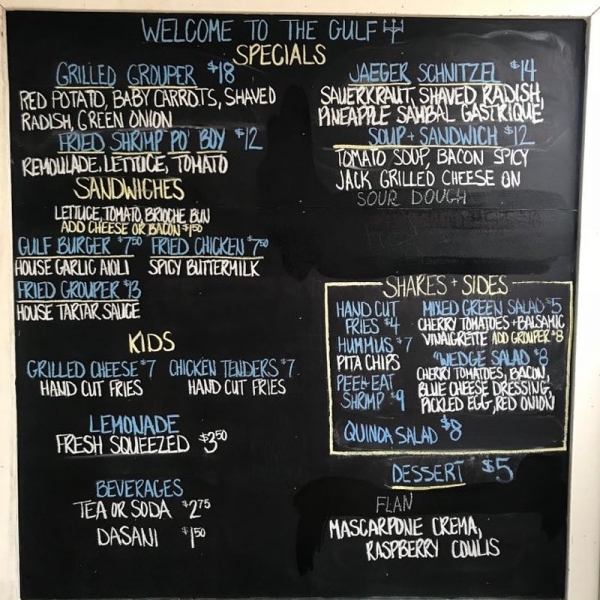 WELCOME TO THE GULF
SPECIALS
GRILLED GROUPER $18
RED POTATO, BABY CARROTS, SHAVED
RADISH, GREEN ONION
FRIED SHRIMP PO' BOY $12
REMOULADE, LETTUCE, TOMATO
JAEGER SCHNITZEL $14
SAUERKRAUT, SHAVED RADISH,
PINEAPPLE SAMBAL GASTRIQUE
SOUP + SANDWICH $12
TOMATO SOUP, BACON SPICY
JACK GRILLED CHEESE ON
SOUR DOUGH
SANDWICHES
LETTUCE, TOMATO, BRIOCHE BUN
ADD CHEESE OR BACON $1.50
GULF BURGER $7.50 FRIED CHICKEN $7.50
HOUSE GARLIC AIOLI SPICY BUTTERMILK
FRIED GROUPER $13
HOUSE TARTAR SAUCE
KIDS
GRILLED CHEESE $7 CHICKEN TENDERS $7
HAND CUT FRIES HAND CUT FRIES
LEMONADE
FRESH SQUEEZED $3.50
BEVERAGES
TEA OR SODA $2.75
DASANI $1.50
SHARES + SIDES
HAND CUT
FRIES $4
HUMMUS $7
PITA CHIPS
PEEL+EAT
SHRIMP $9
QUINOA SALAD $8
MIXED GREEN SALAD $5
CHERRY TOMATOES + BALSAMIC
VINAIGRETTE ADD GROUPER $8
"WEDGE SALAD $8
CHERRY TOMATOES, BACON,
BLUE CHEESE DRESSING,
PICKLED EGG, RED ONION
DESSERT $5
FLAN
MASCARPONE CREMA,
RASPBERRY COULIS